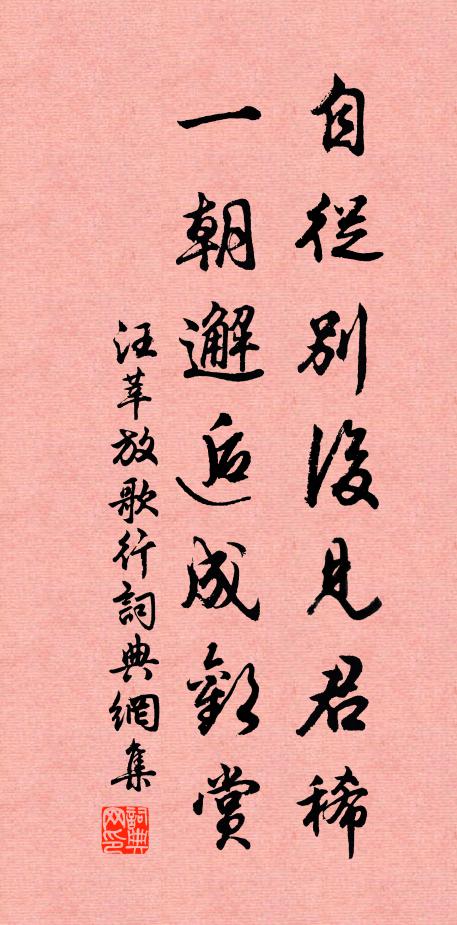 自從別後見君稀
一朝邂逅成歡賞
汪莘放歌行詞典網集
詞典網印